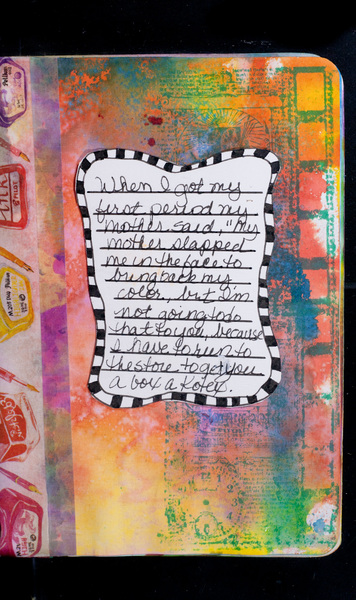 When I got my
first period my
mother said, "My
mother slapped
me in the face to
bring back my
color, but I'm
not going to do
that to you, because
I have to run to
the store to get you
a box a Kotex.